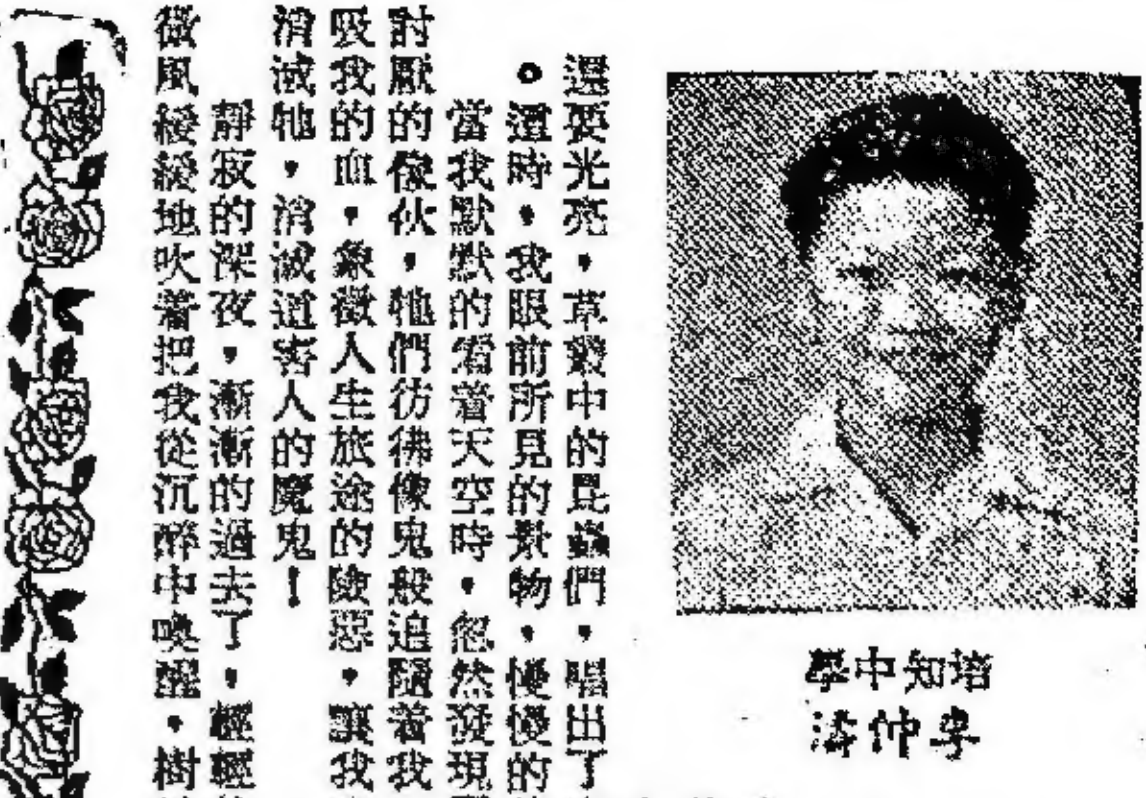 還要光亮，草叢中的昆蟲們，唱出了
。這時，我眼前所見的景物，慢慢的
當我默默的看着天空時，忽然發現
討厭的傢伙，牠們彷彿像鬼般追隨着我
吸我的血，象徵人生旅途的險惡，讓我
消滅牠，消滅這害人的魔鬼！
靜寂的深夜，漸漸的過去了，輕輕
微風緩緩地吹着把我從沉醉中喚醒，樹
學中知培